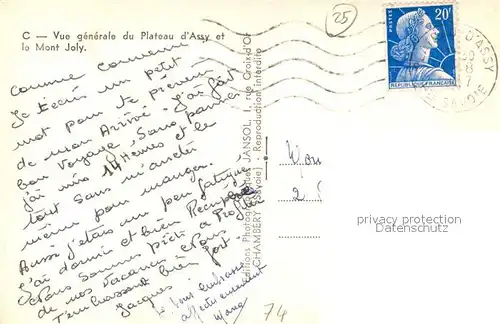 C — Vue générale du Plateau d'Assy et
le Mont Joly.
25
POSTES
20F
RÉPUBLIQUE FRANÇAISE
D'ASSY
SAVOIE
Comme convenu
Je t'écris un petit
mot pour te prévenir
de mon Arrivé. J'ai fait
bon Voyage, Sans panne
j'ai mis 14 Heures et le
tout Sans m'arrêter
même pour manger.
Aussi j'étais un peu fatigué
j'ai dormi et bien Remplacé
Nous Sommes prêts a Profiter
de nos Vacances. Nous
T'embrassons bien fort
Jacques.
Je vous embrasse
affectueusement
74
Editions Photographiques JANSOL, 1, rue Croix-d'Or
CHAMBÉRY (Savoie) - Reproduction interdite
privacy protection
Datenschutz